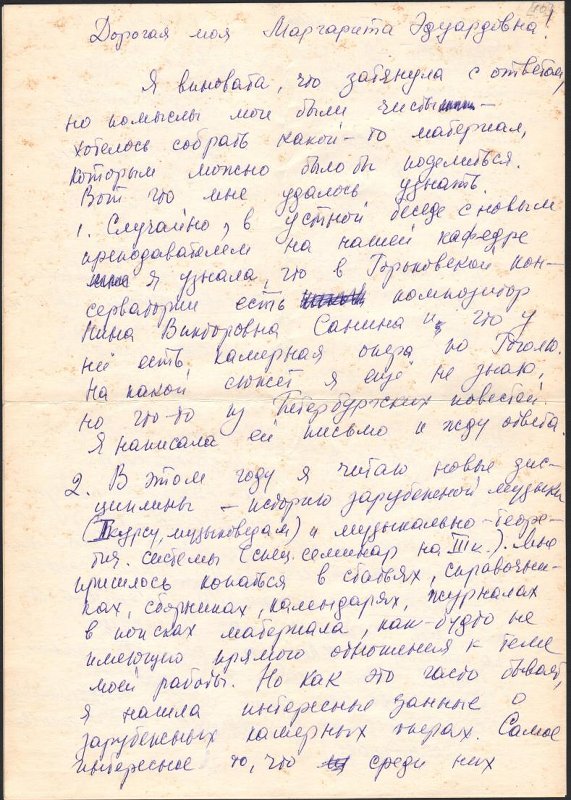 107
Дорогая моя Маргарита Эдуардовна!
Я виновата, что затянула с ответом,
но помыслы мои были чисты –
хотелось собрать какой-то материал,
которым можно было бы поделиться.
Вот что мне удалось узнать.
1. Случайно, в устной беседе с новым
преподавателем на нашей кафедре
я узнала, что в Горьковской кон-
серватории есть композитор
Нина Викторовна Санина и, что у
неё есть камерная опера по Гоголю.
На какой сюжет я ещё не знаю,
но что-то из Петербургских повестей.
Я написала ей письмо и жду ответа.
2. В этом году я читаю новые дис-
циплины – историю зарубежной музыки
(I курсу, музыковедам) и музыкально-теоре-
тич. системы (спец. семинар на III к.). Мне
пришлось копаться в статьях, справочни-
ках, сборниках, календарях, журналах
в поисках материала, как-будто не
имеющую прямого отношения к теме
моей работы. Но как это часто бывает,
я нашла интересные данные о
зарубежных камерных операх. Самое
интересное то, что среди них